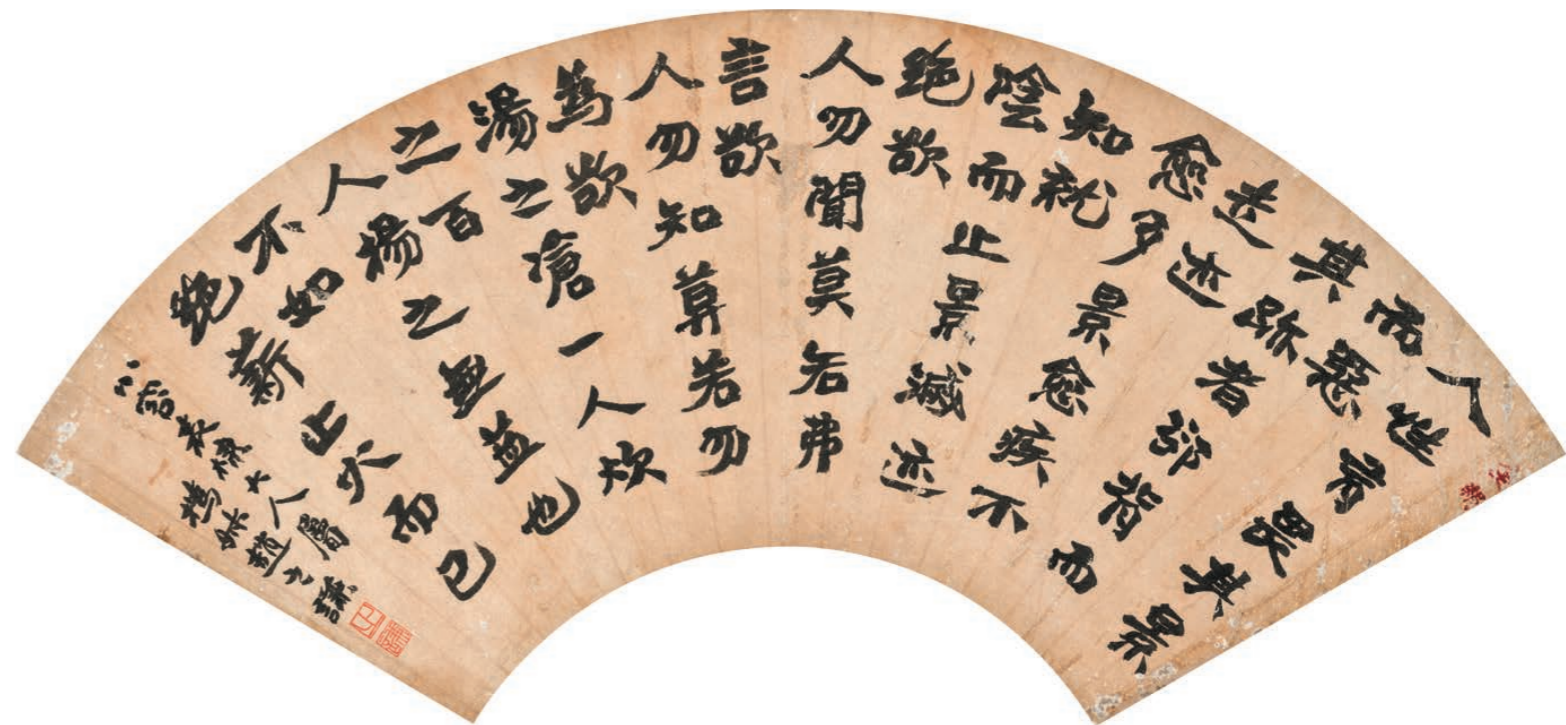 人性有畏其景
而惡
其跡者卻背而
走迹
愈多景愈疾不
知就
陰而止景滅迹
絕欲
人勿聞莫若弗
言欲
人勿知莫若勿
為欲
湯之滄一人炊
之百
人揚之無益也
不如
絕薪止火而已
小容棣大人屬
撝叔趙之謙